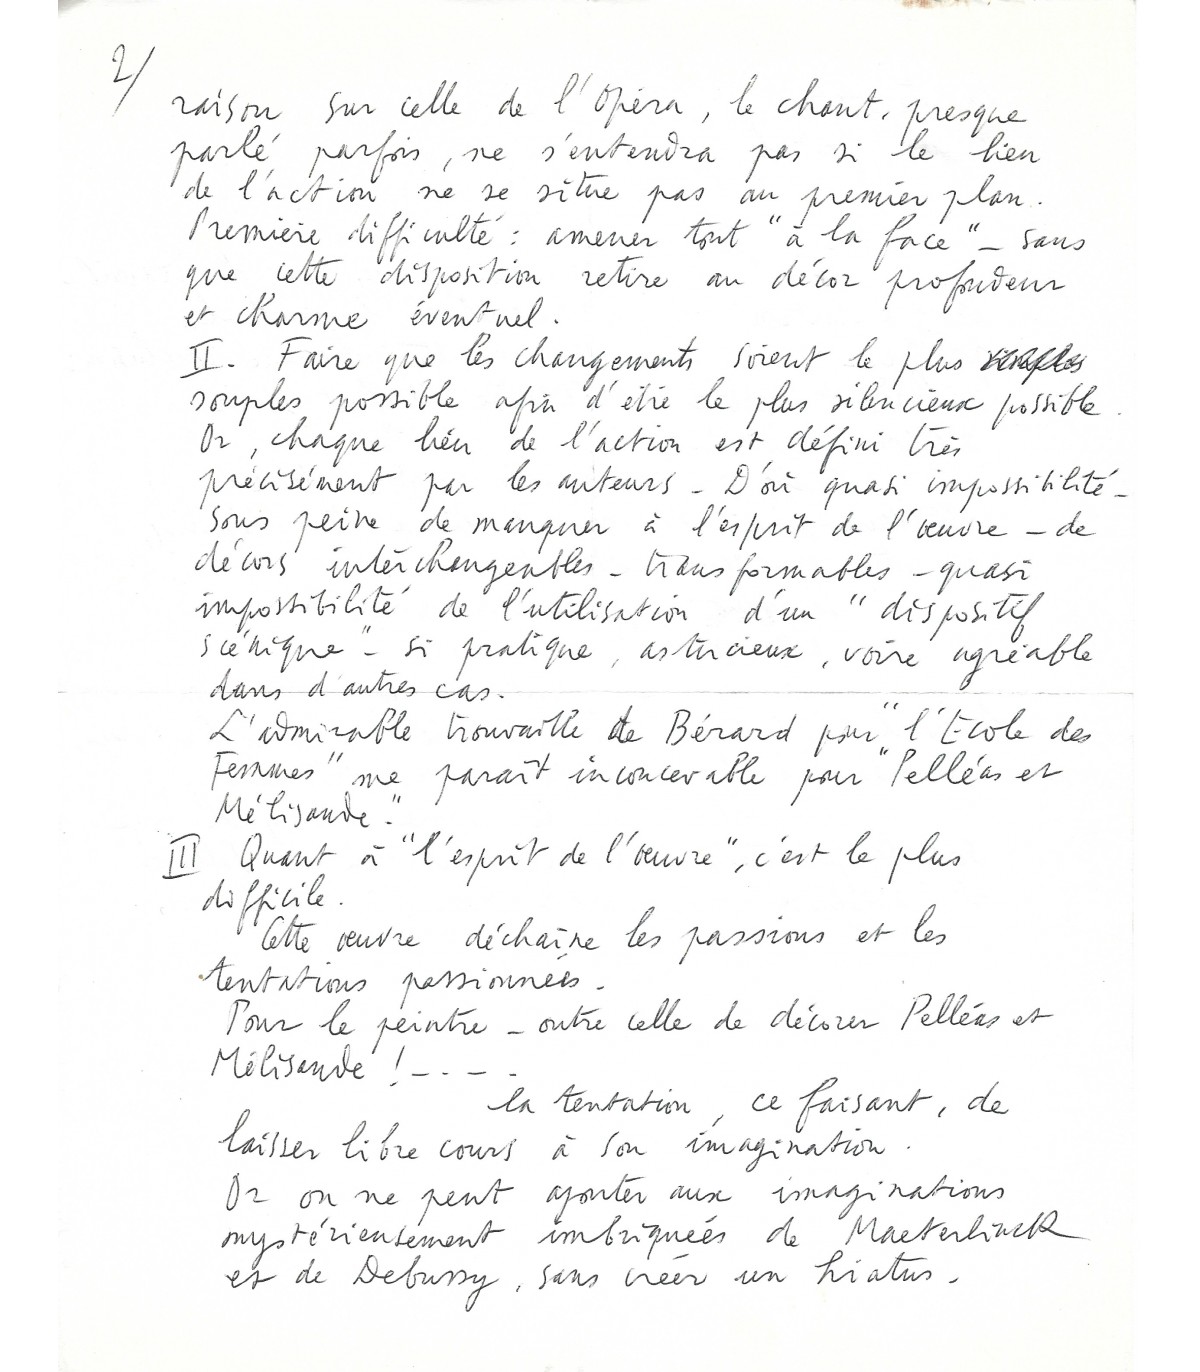 2/
raison sur celle de l'Opéra, le chant, presque
parlé parfois, ne s'entendra pas si le lieu
de l'action ne se situe pas au premier plan.
Première difficulté : amener tout "à la face" - sans
que cette disposition retire au décor profondeur
et charme éventuel.
II. Faire que les changements soient le plus
souples possible afin d'être le plus silencieux possible.
Or, chaque lieu de l'action est défini très
précisément par les auteurs - D'où quasi impossibilité -
sous peine de manquer à l'esprit de l'œuvre - de
décors interchangeables - transformables - quasi
impossibilité de l'utilisation d'un "dispositif
scénique" - si pratique, astucieux, voire agréable
dans d'autres cas.
L'admirable trouvaille de Bérard pour "l'Ecole des
Femmes" me paraît inconcevable pour "Pelléas et
Mélisande."
III Quant à "l'esprit de l'œuvre", c'est le plus
difficile.
Cette œuvre déchaîne les passions et les
tentations passionnées.
Pour le peintre - outre celle de décorer Pelléas et
Mélisande ! - - - -
la tentation, ce faisant, de
laisser libre cours à son imagination.
Or on ne peut ajouter aux imaginations
mystérieusement imbriquées de Maeterlinck
et de Debussy, sans créer un hiatus.